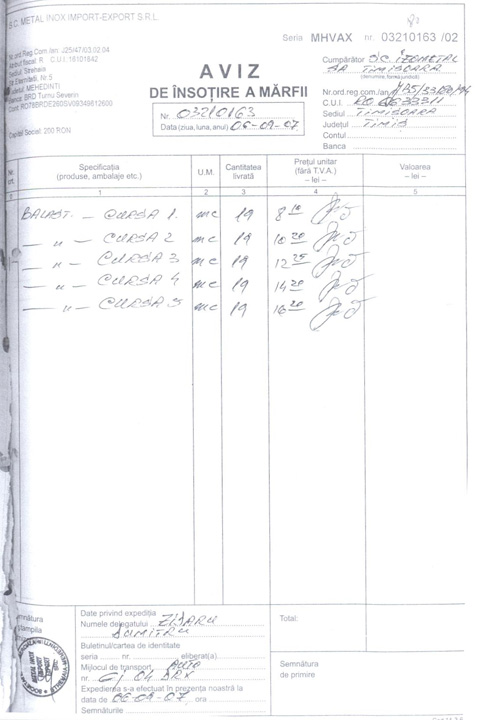 S.C. METAL INOX IMPORT-EXPORT S.R.L.
80
Seria MHVAX nr. 03210163 /02
Nr.ord.Reg.Com./an J25/47/03.02.04
C.U.I. 16101842
Strehaia
Nr. 5
MEHEDINTI
BRD Turnu Severin
Capital Social: 200 RON
AVIZ
DE ÎNSOȚIRE A MĂRFII
Nr. 03210163
Data (ziua, luna, anul) 06-09-07
Cumpărător
TIMISOARA
Nr.ord.reg.com./an
C.U.I.
Sediul TIMISOARA
Județul TIMIS
Contul
Banca
Nr. crt.
Specificația (produse, ambalaje etc.)
U.M.
Cantitatea livrată
Prețul unitar (fără T.V.A.) – lei –
Valoarea – lei –
1 2 3 4 5
BALAST - CURSA 1. mc 19 8 10
— " — CURSA 2 mc 19 10 20
— " — CURSA 3 mc 19 12 25
— " — CURSA 4 mc 19 14 20
— " — CURSA 5 mc 19 16 20
Date privind expediția
Numele delegatului
DUMITRU
Buletinul/cartea de identitate
seria nr. eliberat(a)
Mijlocul de transport AUTO
nr. GJ 04 DRX
Expedierea s-a efectuat în prezența noastră la
data de 06-09-07, ora
Semnăturile
Total:
Semnătura
de primire